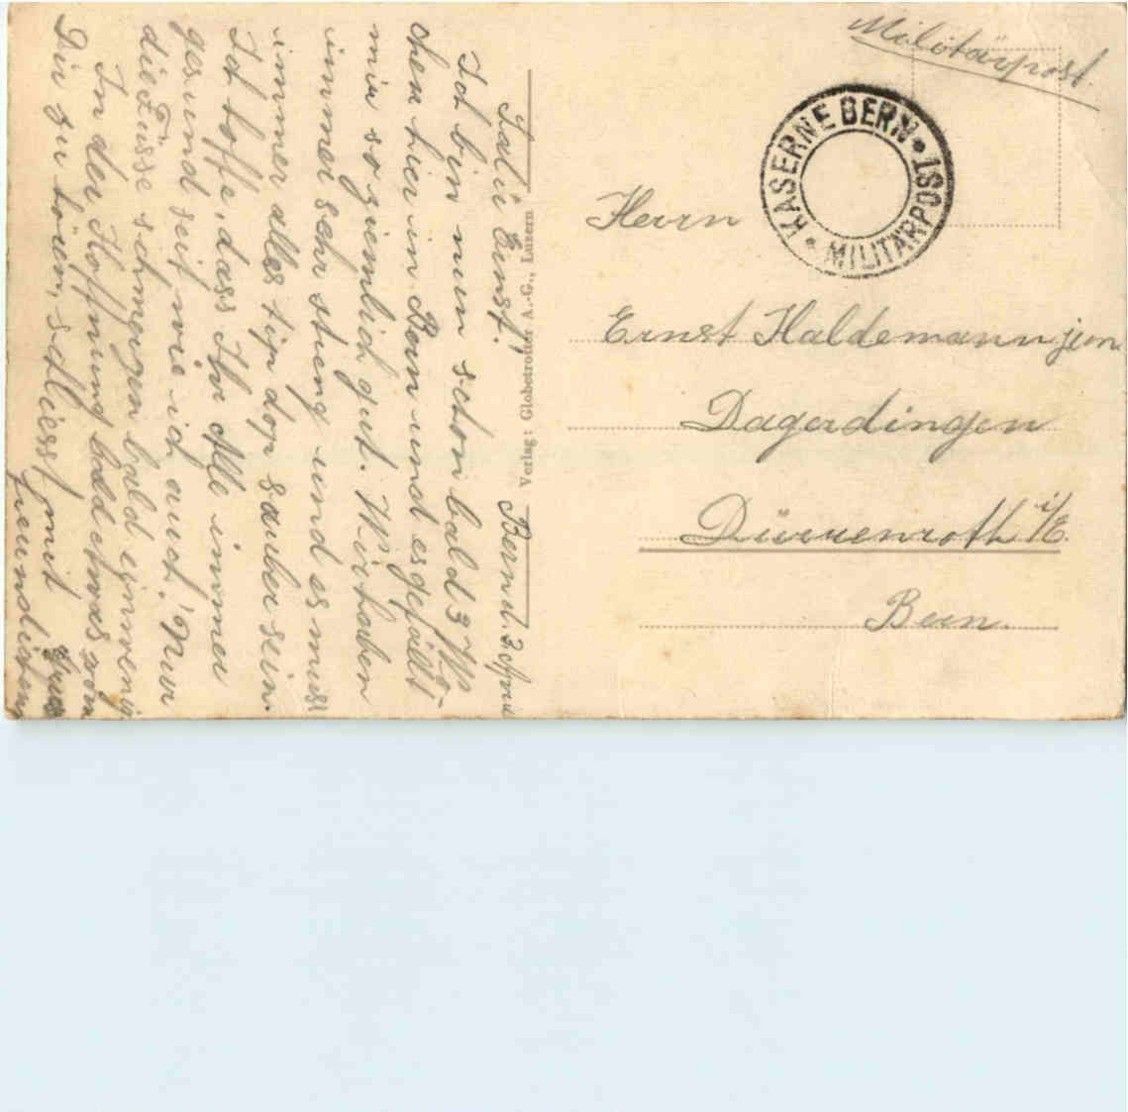 Militärpost
KASERNE BERN * MILITÄRPOST *
Herrn
Ernst Haldemann jun
Dagerdingen
Dürrenroth i/E.
Bern.
Verlag: Globetrotter A.-G., Luzern
Bern d. 3 April
Salü Ernst,
Ich bin nun schon bald 3 Wo-
chen hier in Bern und es gefällt
mir so ziemlich gut. Wir haben
immer sehr streng und es muss
immer alles tip dop sauber sein.
Ich hoffe, dass Ihr Alle immer
gesund seit wie ich auch. Nur
die Füsse schmerzen bald ein wenig
In der Hoffnung bald etwas von
Dir zu hören, schliesst mit
freundlichem
Gruss